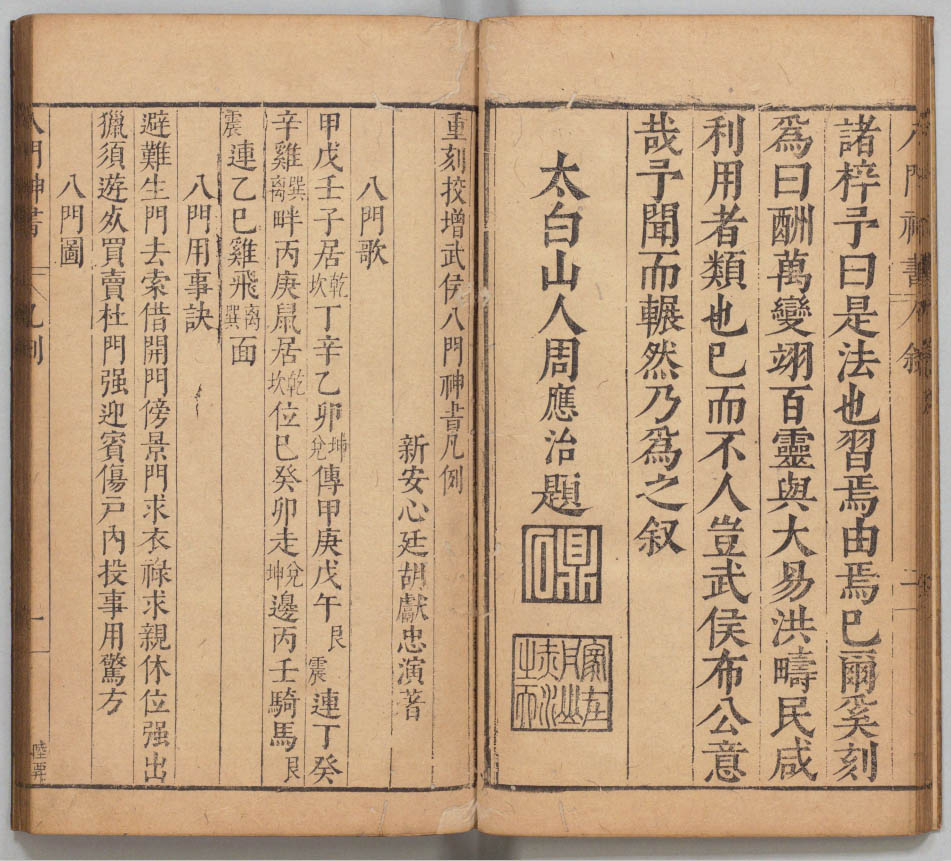 諸梓予曰是法也習焉由焉已爾奚刻
爲曰酬萬變翊百靈與大易洪疇民咸
利用者類也已而不人豈武侯布公意
哉予聞而囅然乃爲之叙
太白山人周應治題
重刻挍增武侯八門神書凡例
新安心廷胡獻忠演著
八門歌
甲戊壬子居乾坎丁辛乙卯坤兌傳甲庚戊午艮震連丁癸
辛雞巽离畔丙庚鼠居乾坎位巳癸卯走兌坤邊丙壬騎馬艮
震連乙巳雞飛离巽面
八門用事訣
避難生門去索借開門傍景門求衣祿求親休位强出
獵須遊死買賣杜門强迎賓傷戸內投事用驚方
八門圖
八門神書
凡例
一